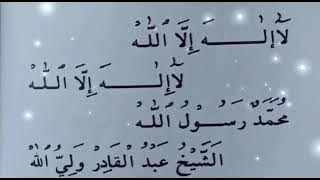 لَاۤإِلٰـــهَ إِلَّا ٱللّٰهُ
لَاۤإِلٰـــهَ إِلَّا ٱللّٰهُ
مُحَمَّدٌ رَسُـولُ ٱللّٰهِ
اَلشَّيْخُ عَبْدُ الْقَادِرِ وَلِيُّ اللّٰهِ